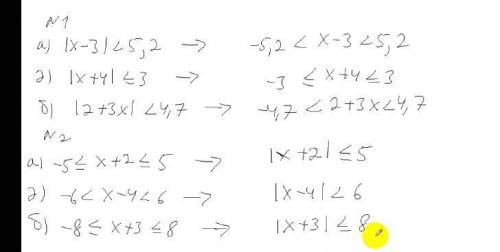 N1
а) |x-3|<5,2 → -5,2 < x-3<5,2
г) |x+4|≤3 → -3 ≤ x+4≤3
б) |2+3x|<4,7 → -4,7 < 2+3x<4,7
N2
а) -5≤ x+2≤5 → |x+2|≤5
г) -6< x-4<6 → |x-4|<6
б) -8≤ x+3≤8 → |x+3|≤8